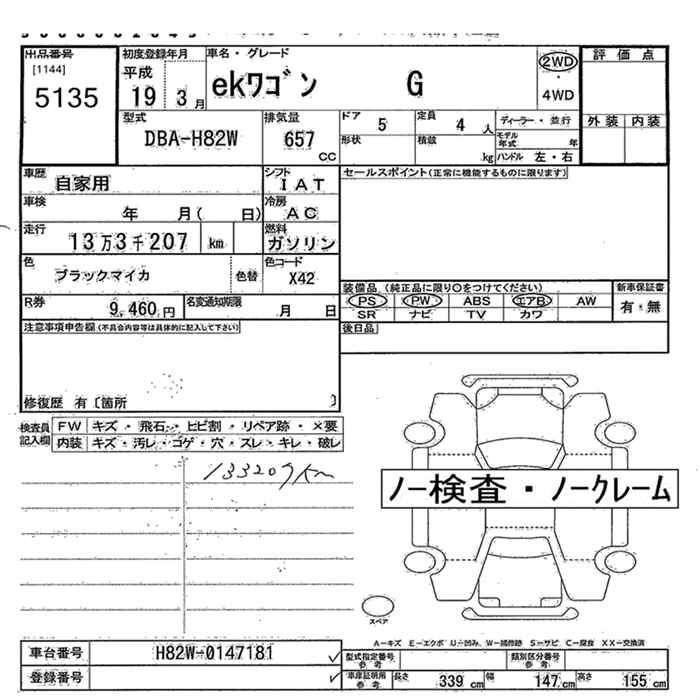 出品番号
[1144]
5135
初度登録年月
平成
19 3月
車名・グレード
ekワゴン G
2WD
・
4WD
評価点
外装 内装
型式
DBA-H82W
排気量
657
CC
ドア 5
定員 4 人
ディーラー・並行
形状
積載 kg
モデル年式 年
ハンドル 左・右
車歴
自家用
シフト
IAT
車検
年 月( 日)
冷房
AC
走行
13万3千207 km
燃料
ガソリン
色
ブラックマイカ
色替
色コード
X42
R券
9,460円
名変通知期限
月 日
セールスポイント(正常に機能するものに限ります)
装備品(純正品に限り○をつけてください)
新車保証書
PS PW ABS エアB AW
有・無
SR ナビ TV カワ
後日品
注意事項申告欄(不具合内容等は具体的に記入して下さい)
修復歴 有〔箇所 〕
検査員
記入欄
FW キズ・飛石・ヒビ割・リペア跡・×要
内装 キズ・汚レ・コゲ・穴・ズレ・キレ・破レ
133209Km
ノー検査・ノークレーム
スペア
A-キズ E-エクボ U-凹み、W-補修跡 S-サビ C-腐食 XX-交換済
車台番号 H82W-0147181
登録番号
型式指定番号
参考
類別区分番号
参考
車庫証明用
参考
長さ 339 cm
幅 147 cm
高さ 155 cm